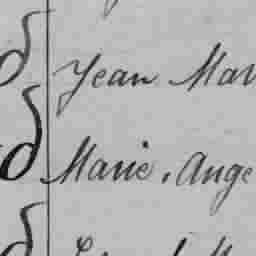 d Jean Mar
d Marie, Ange
d